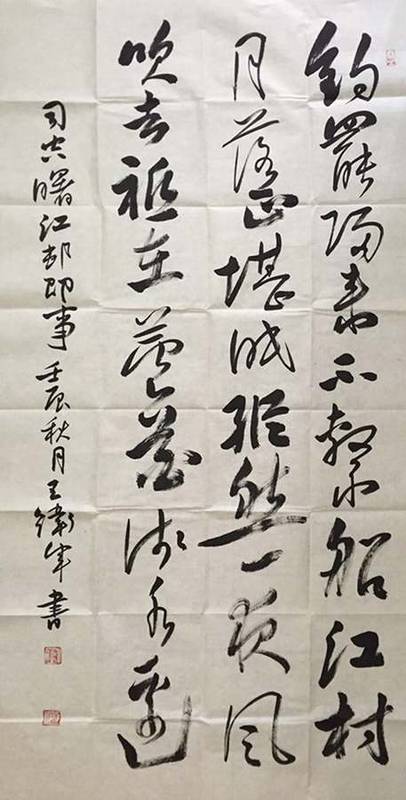 釣罷歸來不繫船江村
月落正堪眠縱然一夜風
吹去祗在蘆花淺水邊
司空曙江邨即事 壬辰秋月王衛軍書